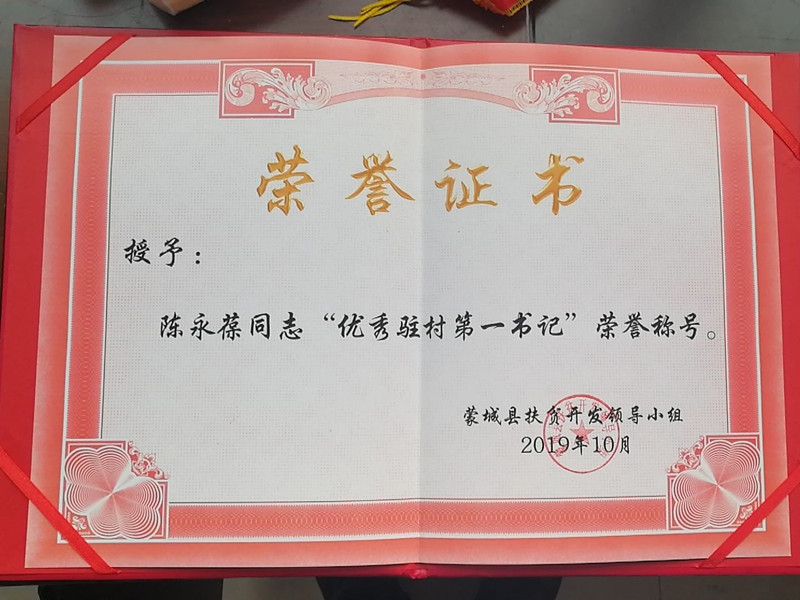 荣誉证书
授予：
陈永葆同志“优秀驻村第一书记”荣誉称号。
蒙城县扶贫开发领导小组
2019年10月